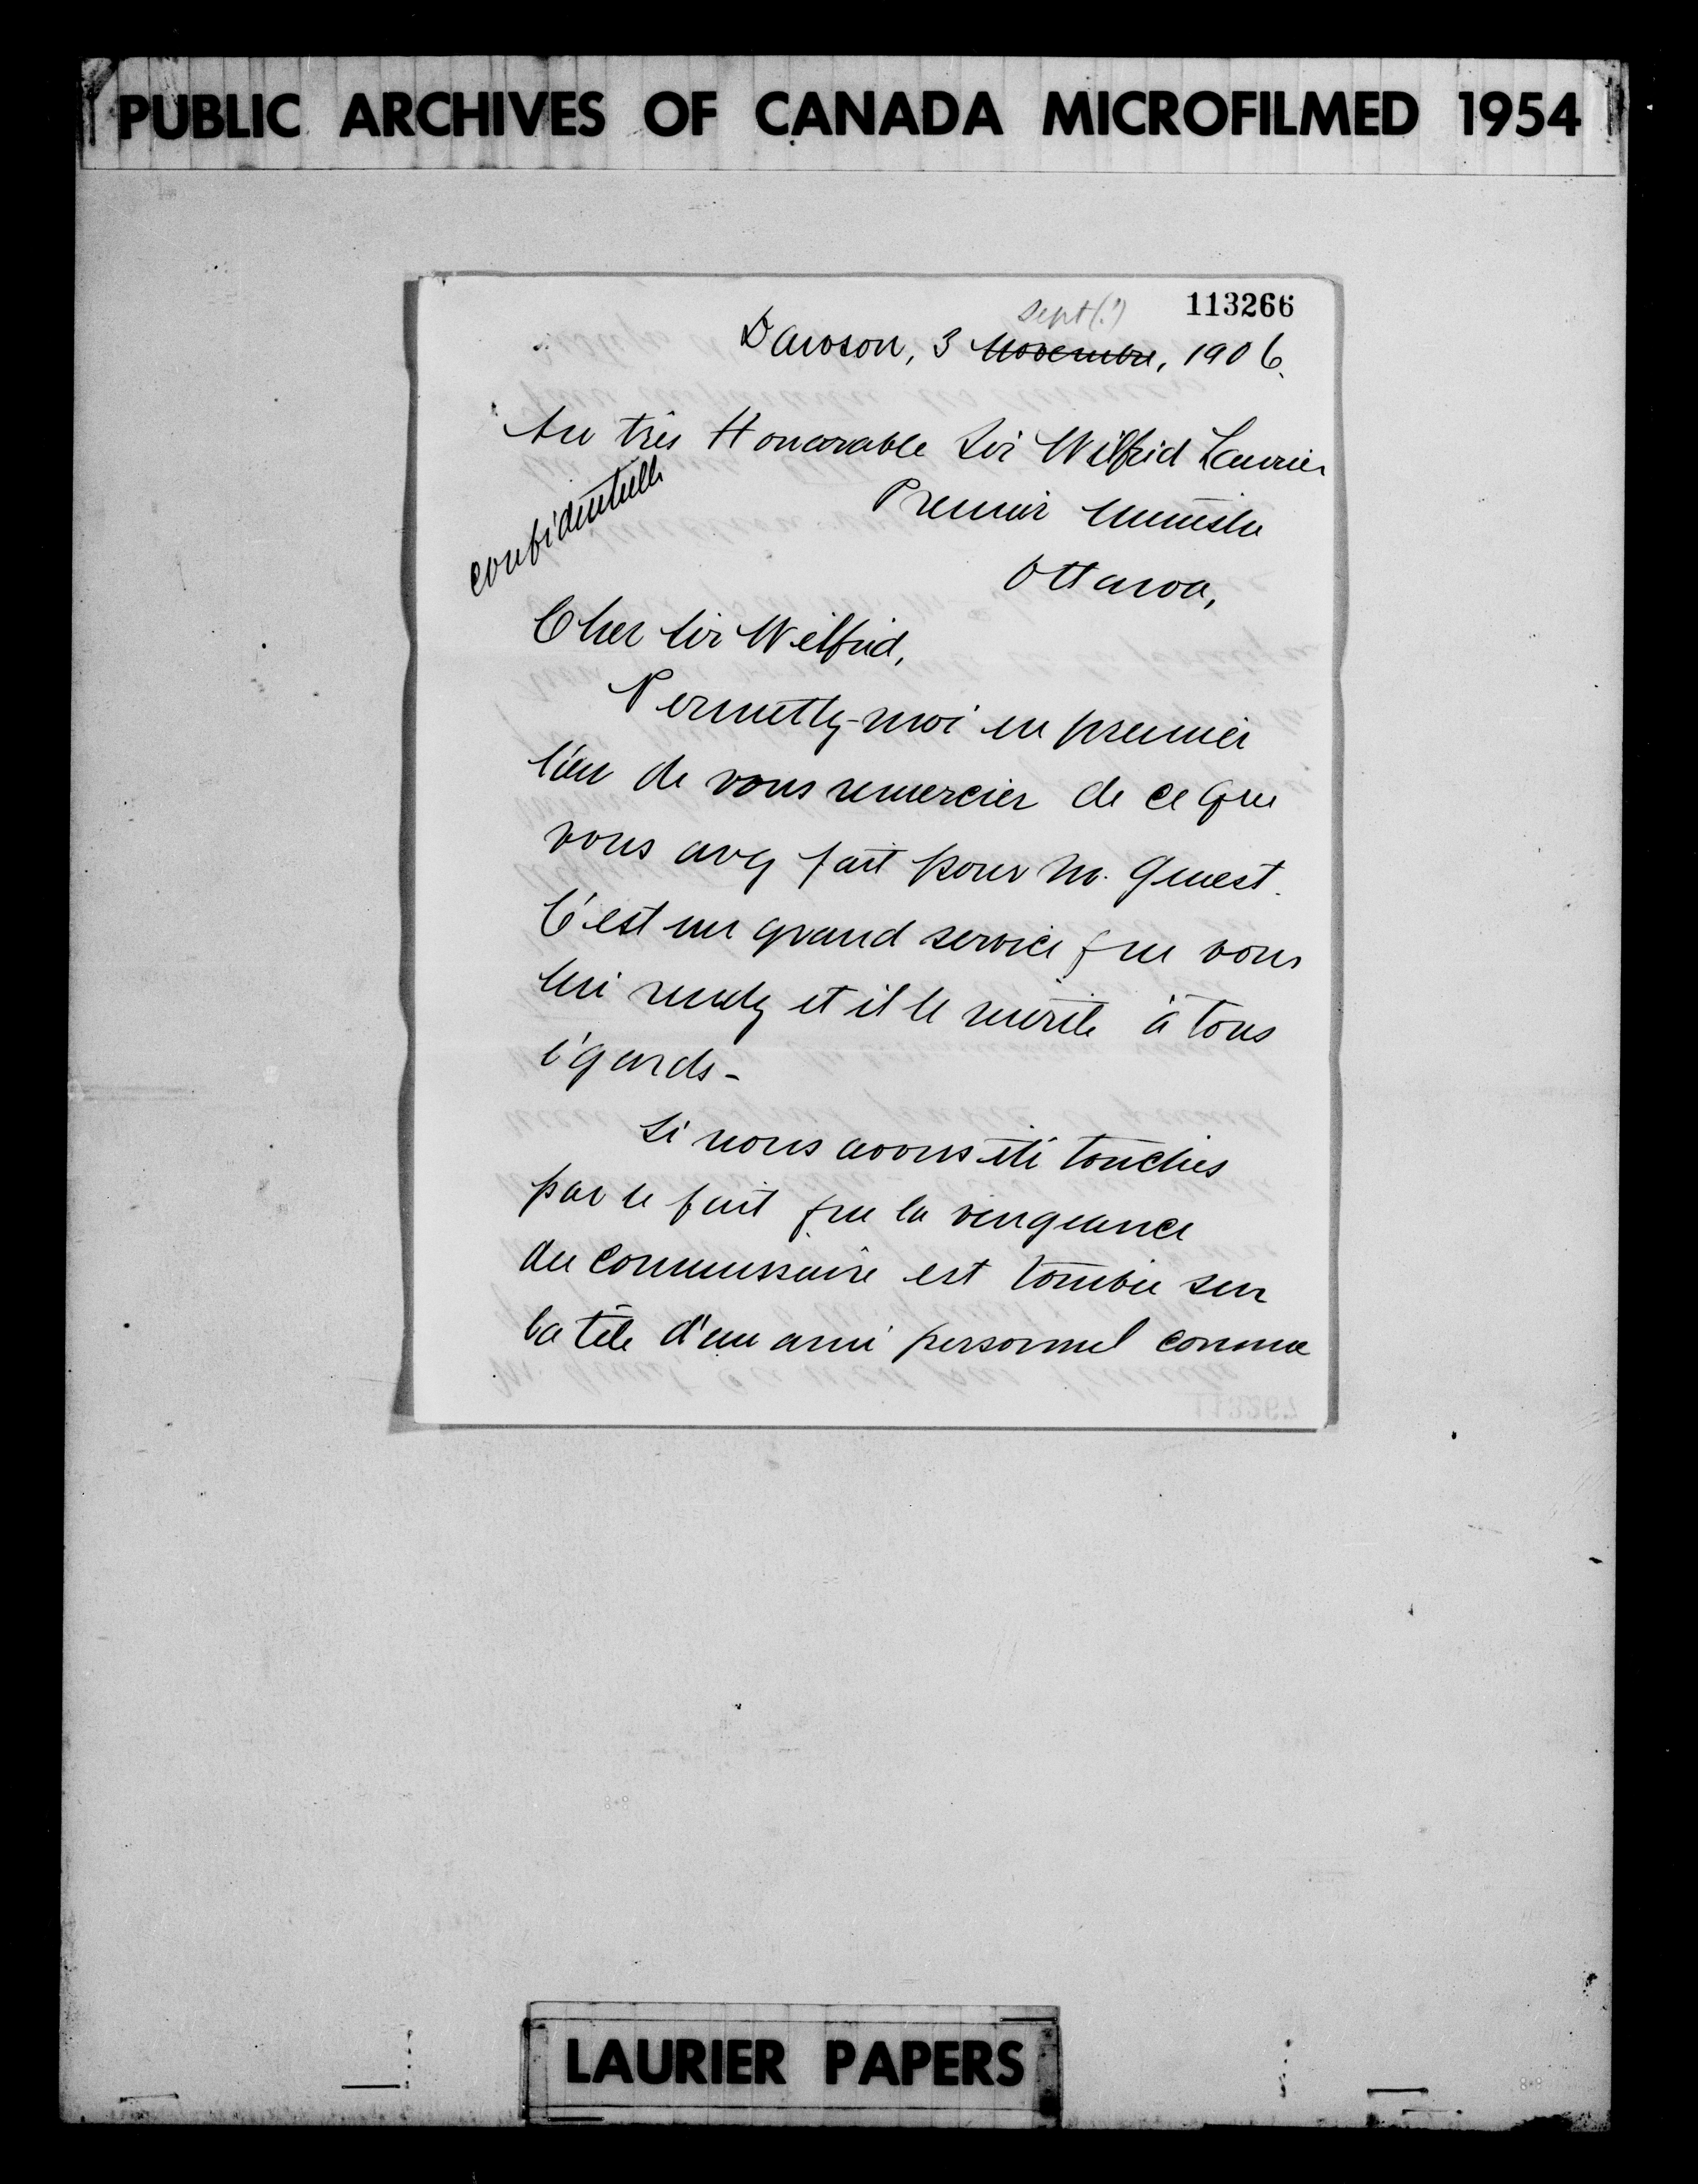 PUBLIC ARCHIVES OF CANADA MICROFILMED 1954
113266
Sept(?)
Dawson, 3 Novembre, 1906.
Au très Honorable Sir Wilfrid Laurier
Premier Ministre
Ottawa,
confidentielle
Cher Sir Wilfrid,
Permettez-moi en premier
lieu de vous remercier de ce que
vous avez fait pour M. Genest.
C'est un grand service que vous
lui rendez et il le mérite à tous
égards-
Si nous avons été touchés
par le fait que la vengeance
du commissaire est tombée sur
la tête d'un ami personnel comme
113267
LAURIER PAPERS